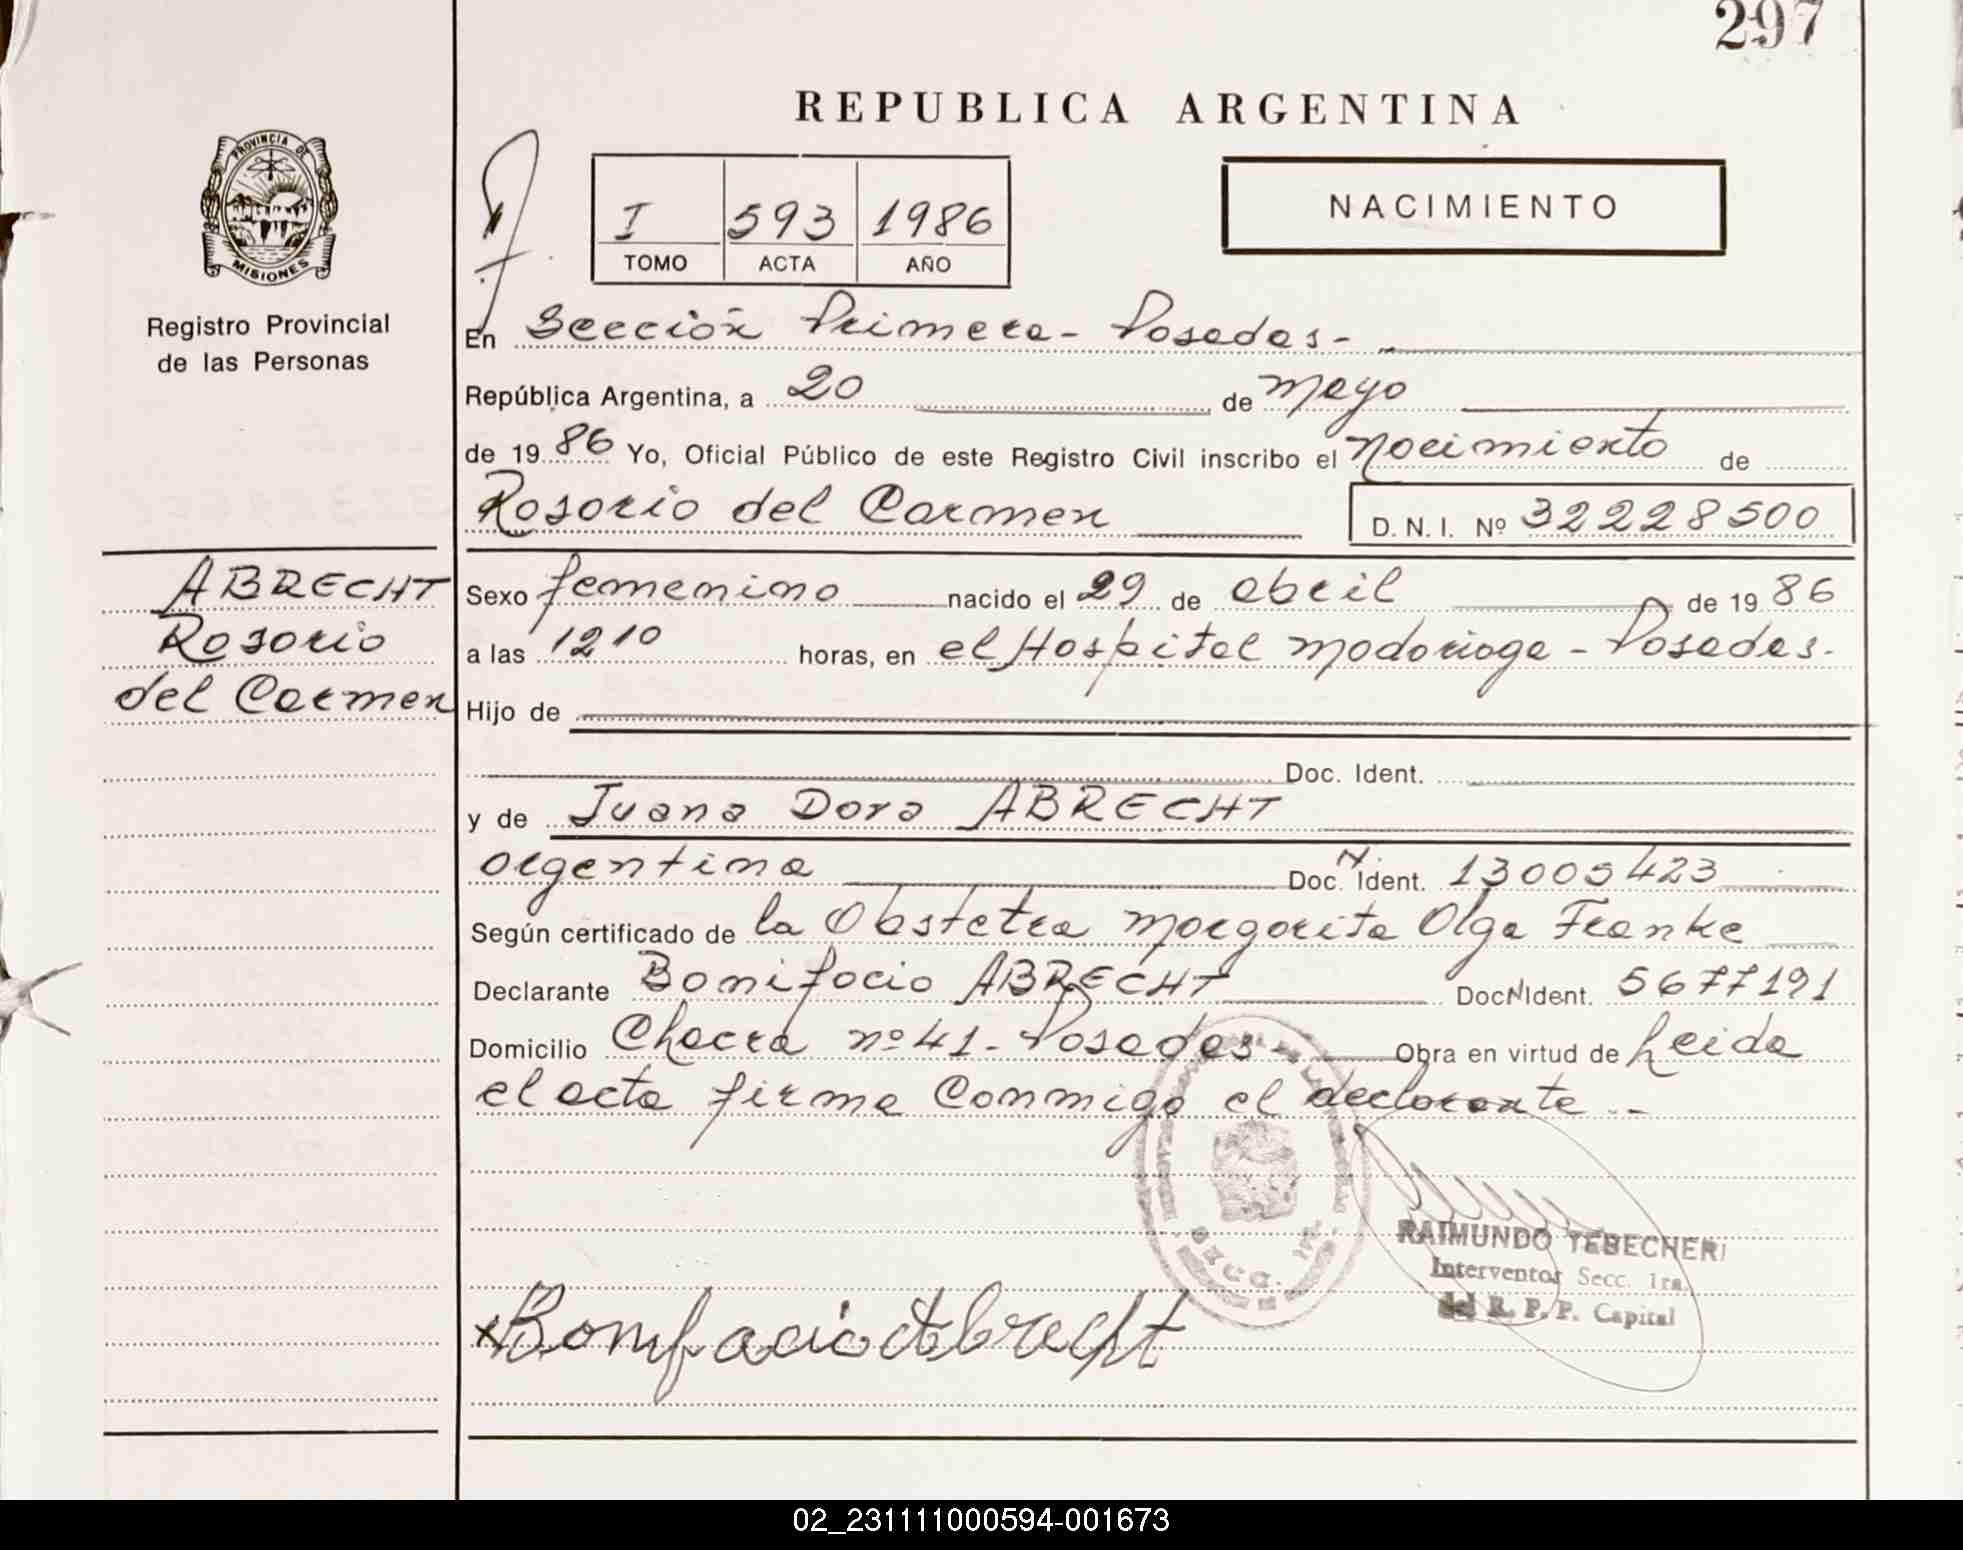 297
REPUBLICA ARGENTINA
PROVINCIA DE
MISIONES
Registro Provincial
de las Personas
I 593 1986
TOMO ACTA AÑO
NACIMIENTO
En Sección Primera - Posadas -
República Argentina, a 20 de mayo
de 1986 Yo, Oficial Público de este Registro Civil inscribo el nacimiento de
Rosario del Carmen D.N.I. Nº 32228500
ABRECHT
Rosario
del Carmen
Sexo femenino nacido el 29 de abril de 1986
a las 12 10 horas, en el Hospital Madariaga - Posadas.
Hijo de
Doc. Ident.
y de Juana Dora ABRECHT
argentina Doc. N. Ident. 13005423
Según certificado de la Obstetra Margarita Olga Franke
Declarante Bonifacio ABRECHT Doc N Ident. 5677191
Domicilio Chacra nº 41 - Posadas - Obra en virtud de Leida
el acta firma conmigo el declarante --
RAIMUNDO TEBECHERI
Interventor Secc. 1ra.
del R. P. P. Capital
x Bonifacio Abrecht
02_231111000594-001673